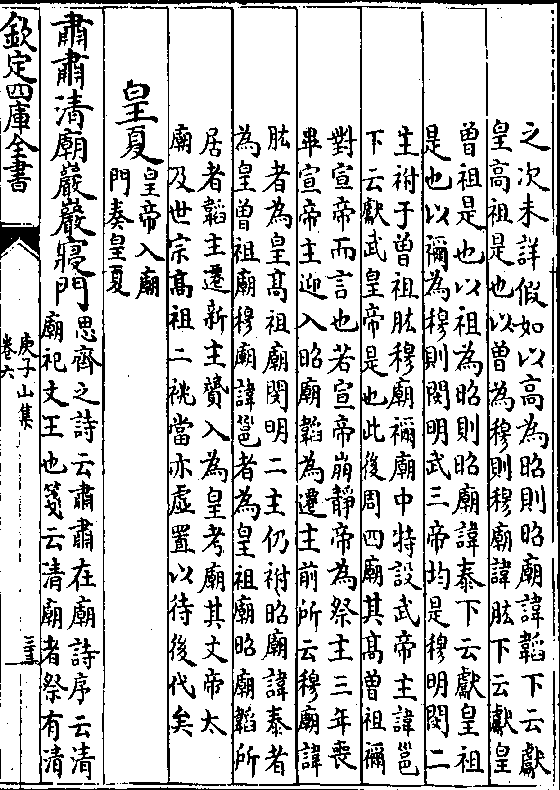 之次未詳假如以高為昭則昭廟諱韜下云獻
皇高祖是也以曾為穆則穆廟諱肱下云獻皇
曾祖是也以祖為昭則昭廟諱泰下云獻皇祖
是也以禰為穆則閔明武三帝均是穆明閔二
主祔于曾祖肱穆廟禰廟中特設武帝主諱邕
下云獻武皇帝是也此後周四廟其高曾祖禰
對宣帝而言也若宣帝崩靜帝為祭主三年喪
畢宣帝主迎入昭廟韜為遷主前所云穆廟諱
肱者為皇高祖廟閔明二主仍祔昭廟諱泰者
為皇曾祖廟穆廟諱邕者為皇祖廟昭廟韜所
居者韜主遷新主贇入為皇考廟其文帝太
廟及世宗高祖二祧當亦虛置以待後代矣
皇夏皇帝入廟
門奏皇夏
肅肅清廟巖巖寢門思齊之詩云肅肅在廟詩序云清
廟祀文王也箋云清廟者祭有清
欽定四庫全書
庾子山集
卷六
三